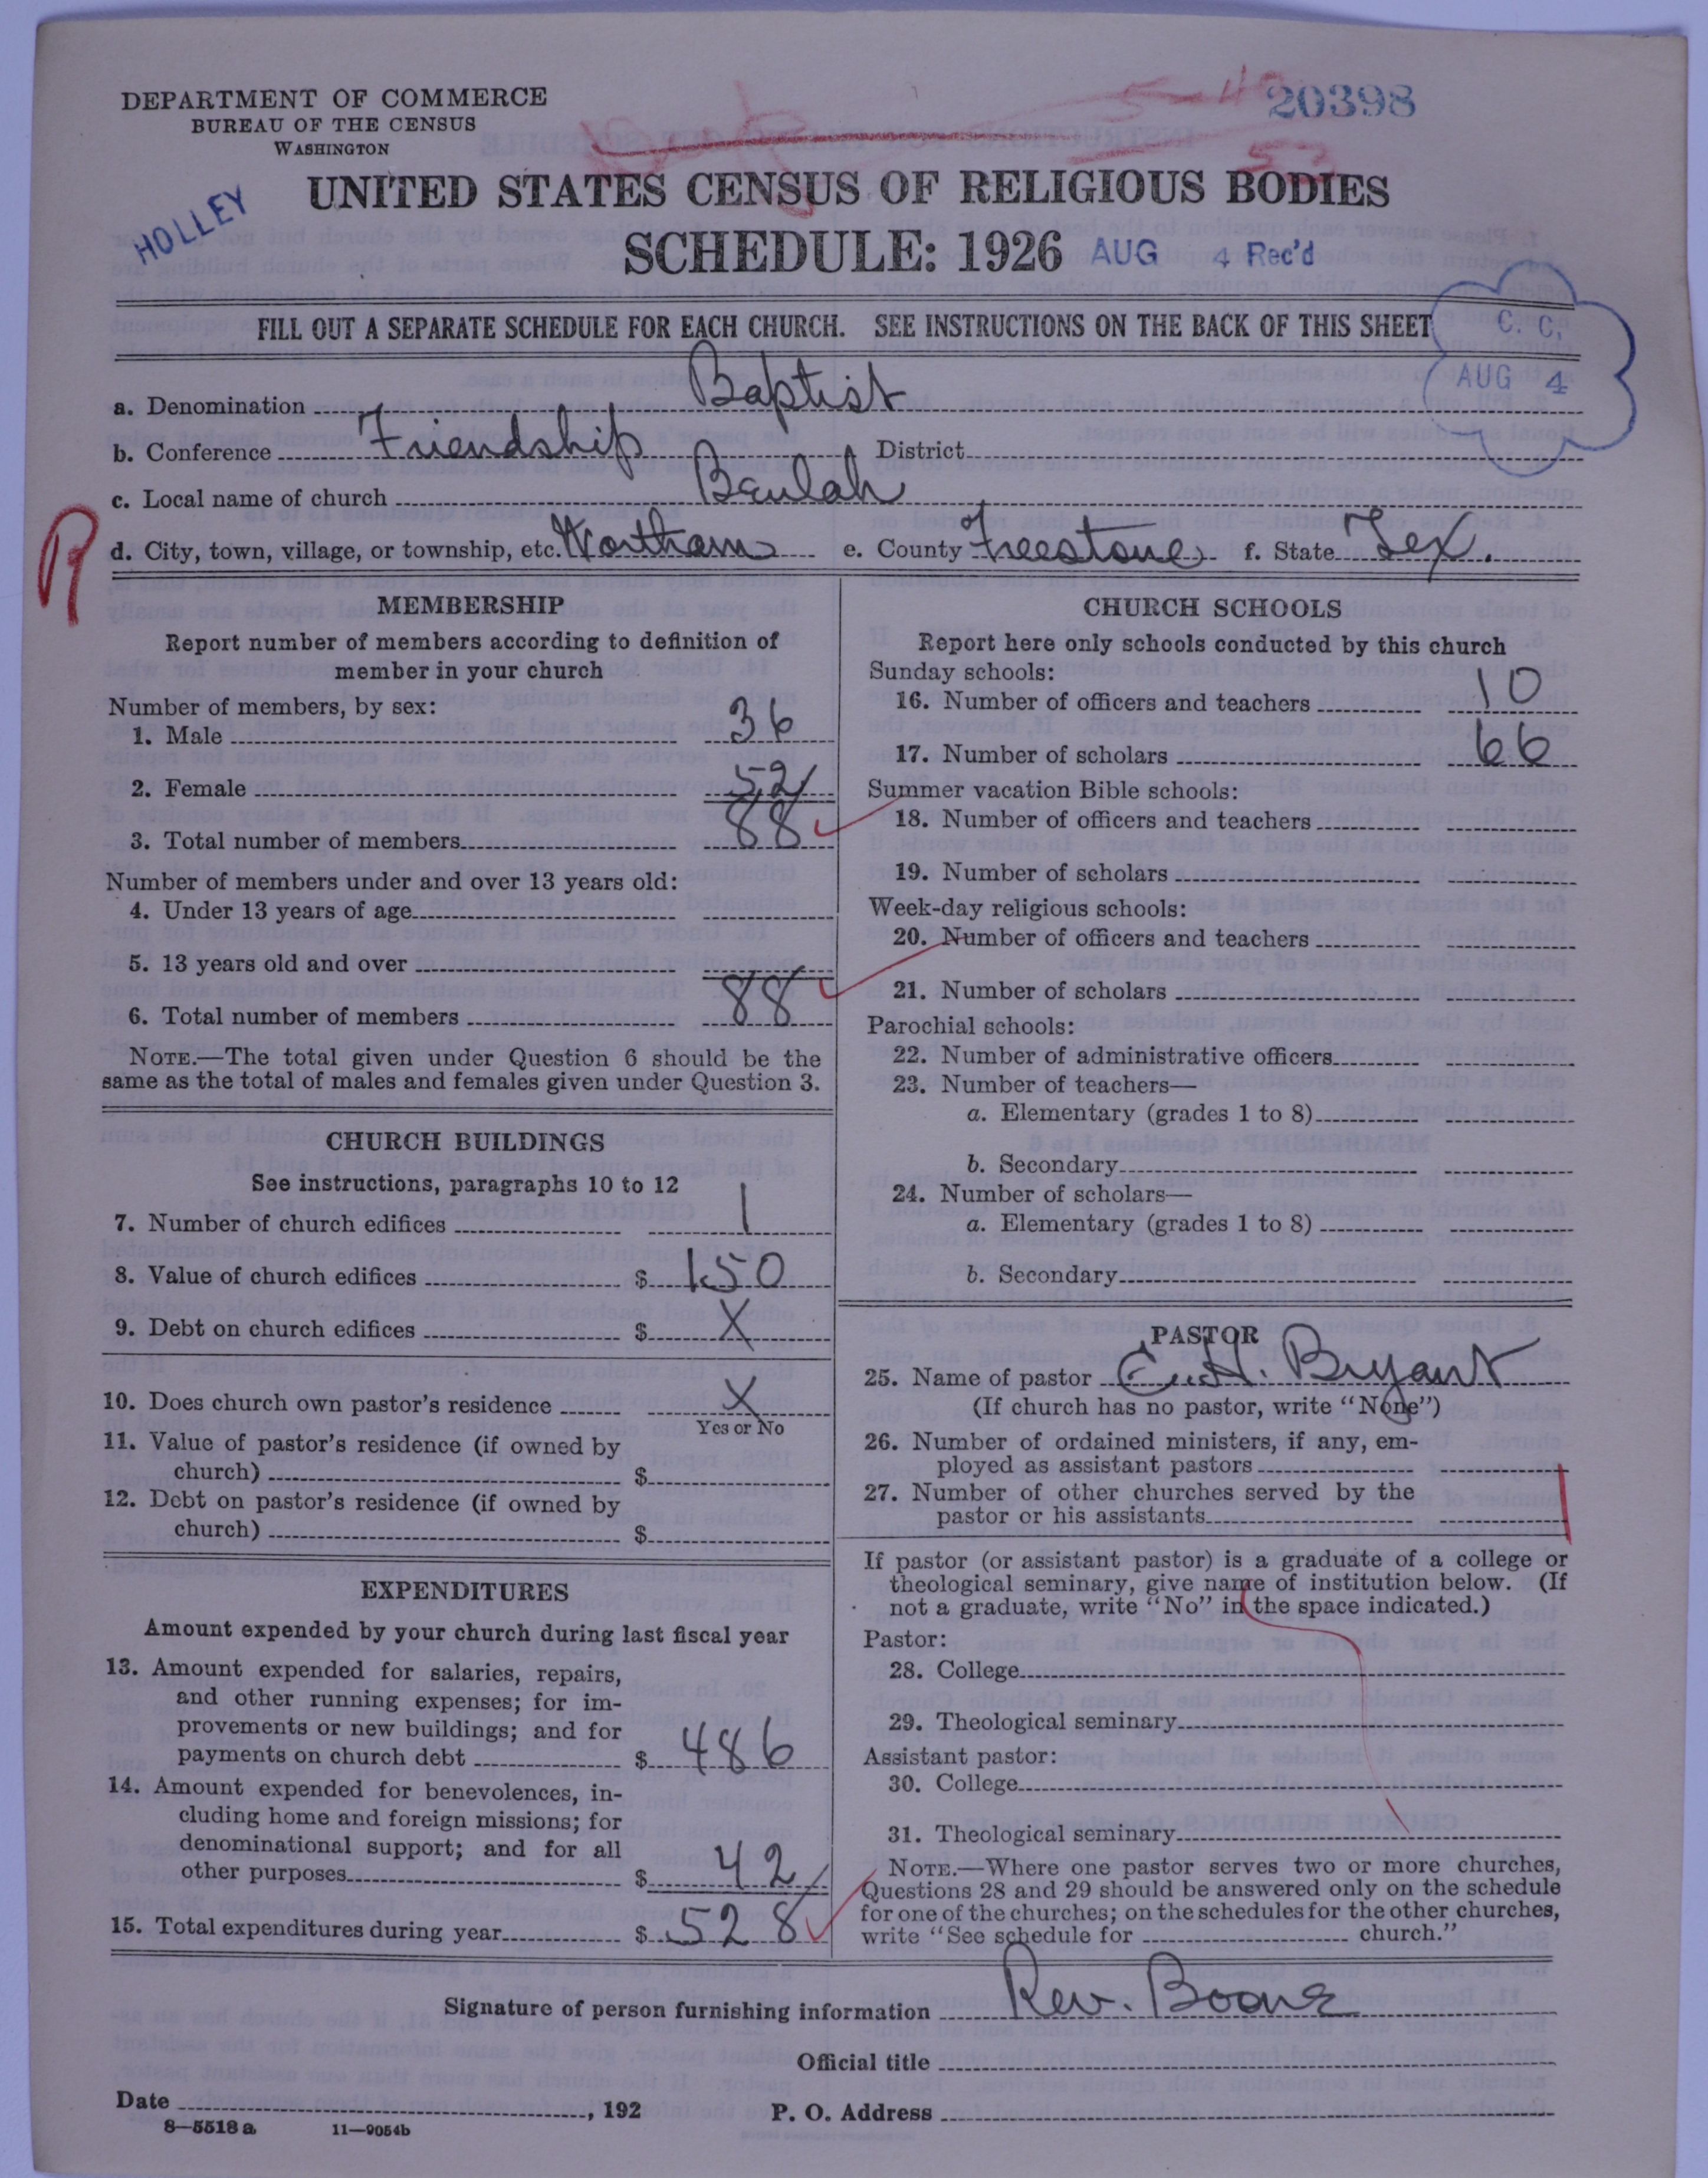 DEPARTMENT OF COMMERCE
BUREAU OF THE CENSUS
WASHINGTON
20398
53
HOLLEY
UNITED STATES CENSUS OF RELIGIOUS BODIES
SCHEDULE: 1926 AUG 4 Rec'd
FILL OUT A SEPARATE SCHEDULE FOR EACH CHURCH. SEE INSTRUCTIONS ON THE BACK OF THIS SHEET
C. C.
AUG 4
a. Denomination Baptist
b. Conference Friendship District
c. Local name of church Beulah
d. City, town, village, or township, etc. Wortham e. County Freestone f. State Tex.
MEMBERSHIP
Report number of members according to definition of
member in your church
Number of members, by sex:
1. Male 36
2. Female 52
3. Total number of members 88
Number of members under and over 13 years old:
4. Under 13 years of age
5. 13 years old and over
6. Total number of members 88
NOTE.—The total given under Question 6 should be the
same as the total of males and females given under Question 3.
CHURCH BUILDINGS
See instructions, paragraphs 10 to 12
7. Number of church edifices 1
8. Value of church edifices $ 150
9. Debt on church edifices $ X
10. Does church own pastor's residence X
Yes or No
11. Value of pastor's residence (if owned by
church) $
12. Debt on pastor's residence (if owned by
church) $
EXPENDITURES
Amount expended by your church during last fiscal year
13. Amount expended for salaries, repairs,
and other running expenses; for im-
provements or new buildings; and for
payments on church debt $ 486
14. Amount expended for benevolences, in-
cluding home and foreign missions; for
denominational support; and for all
other purposes $ 42
15. Total expenditures during year $ 528
CHURCH SCHOOLS
Report here only schools conducted by this church
Sunday schools:
16. Number of officers and teachers 10
17. Number of scholars 66
Summer vacation Bible schools:
18. Number of officers and teachers
19. Number of scholars
Week-day religious schools:
20. Number of officers and teachers
21. Number of scholars
Parochial schools:
22. Number of administrative officers
23. Number of teachers—
a. Elementary (grades 1 to 8)
b. Secondary
24. Number of scholars—
a. Elementary (grades 1 to 8)
b. Secondary
PASTOR
25. Name of pastor E. H. Bryant
(If church has no pastor, write "None")
26. Number of ordained ministers, if any, em-
ployed as assistant pastors
27. Number of other churches served by the
pastor or his assistants
If pastor (or assistant pastor) is a graduate of a college or
theological seminary, give name of institution below. (If
not a graduate, write "No" in the space indicated.)
Pastor:
28. College
29. Theological seminary
Assistant pastor:
30. College
31. Theological seminary
NOTE.—Where one pastor serves two or more churches,
Questions 28 and 29 should be answered only on the schedule
for one of the churches; on the schedules for the other churches,
write "See schedule for church."
Signature of person furnishing information Rev. Boone
Official title
Date , 192 P. O. Address
8—5518 a 11—9054b